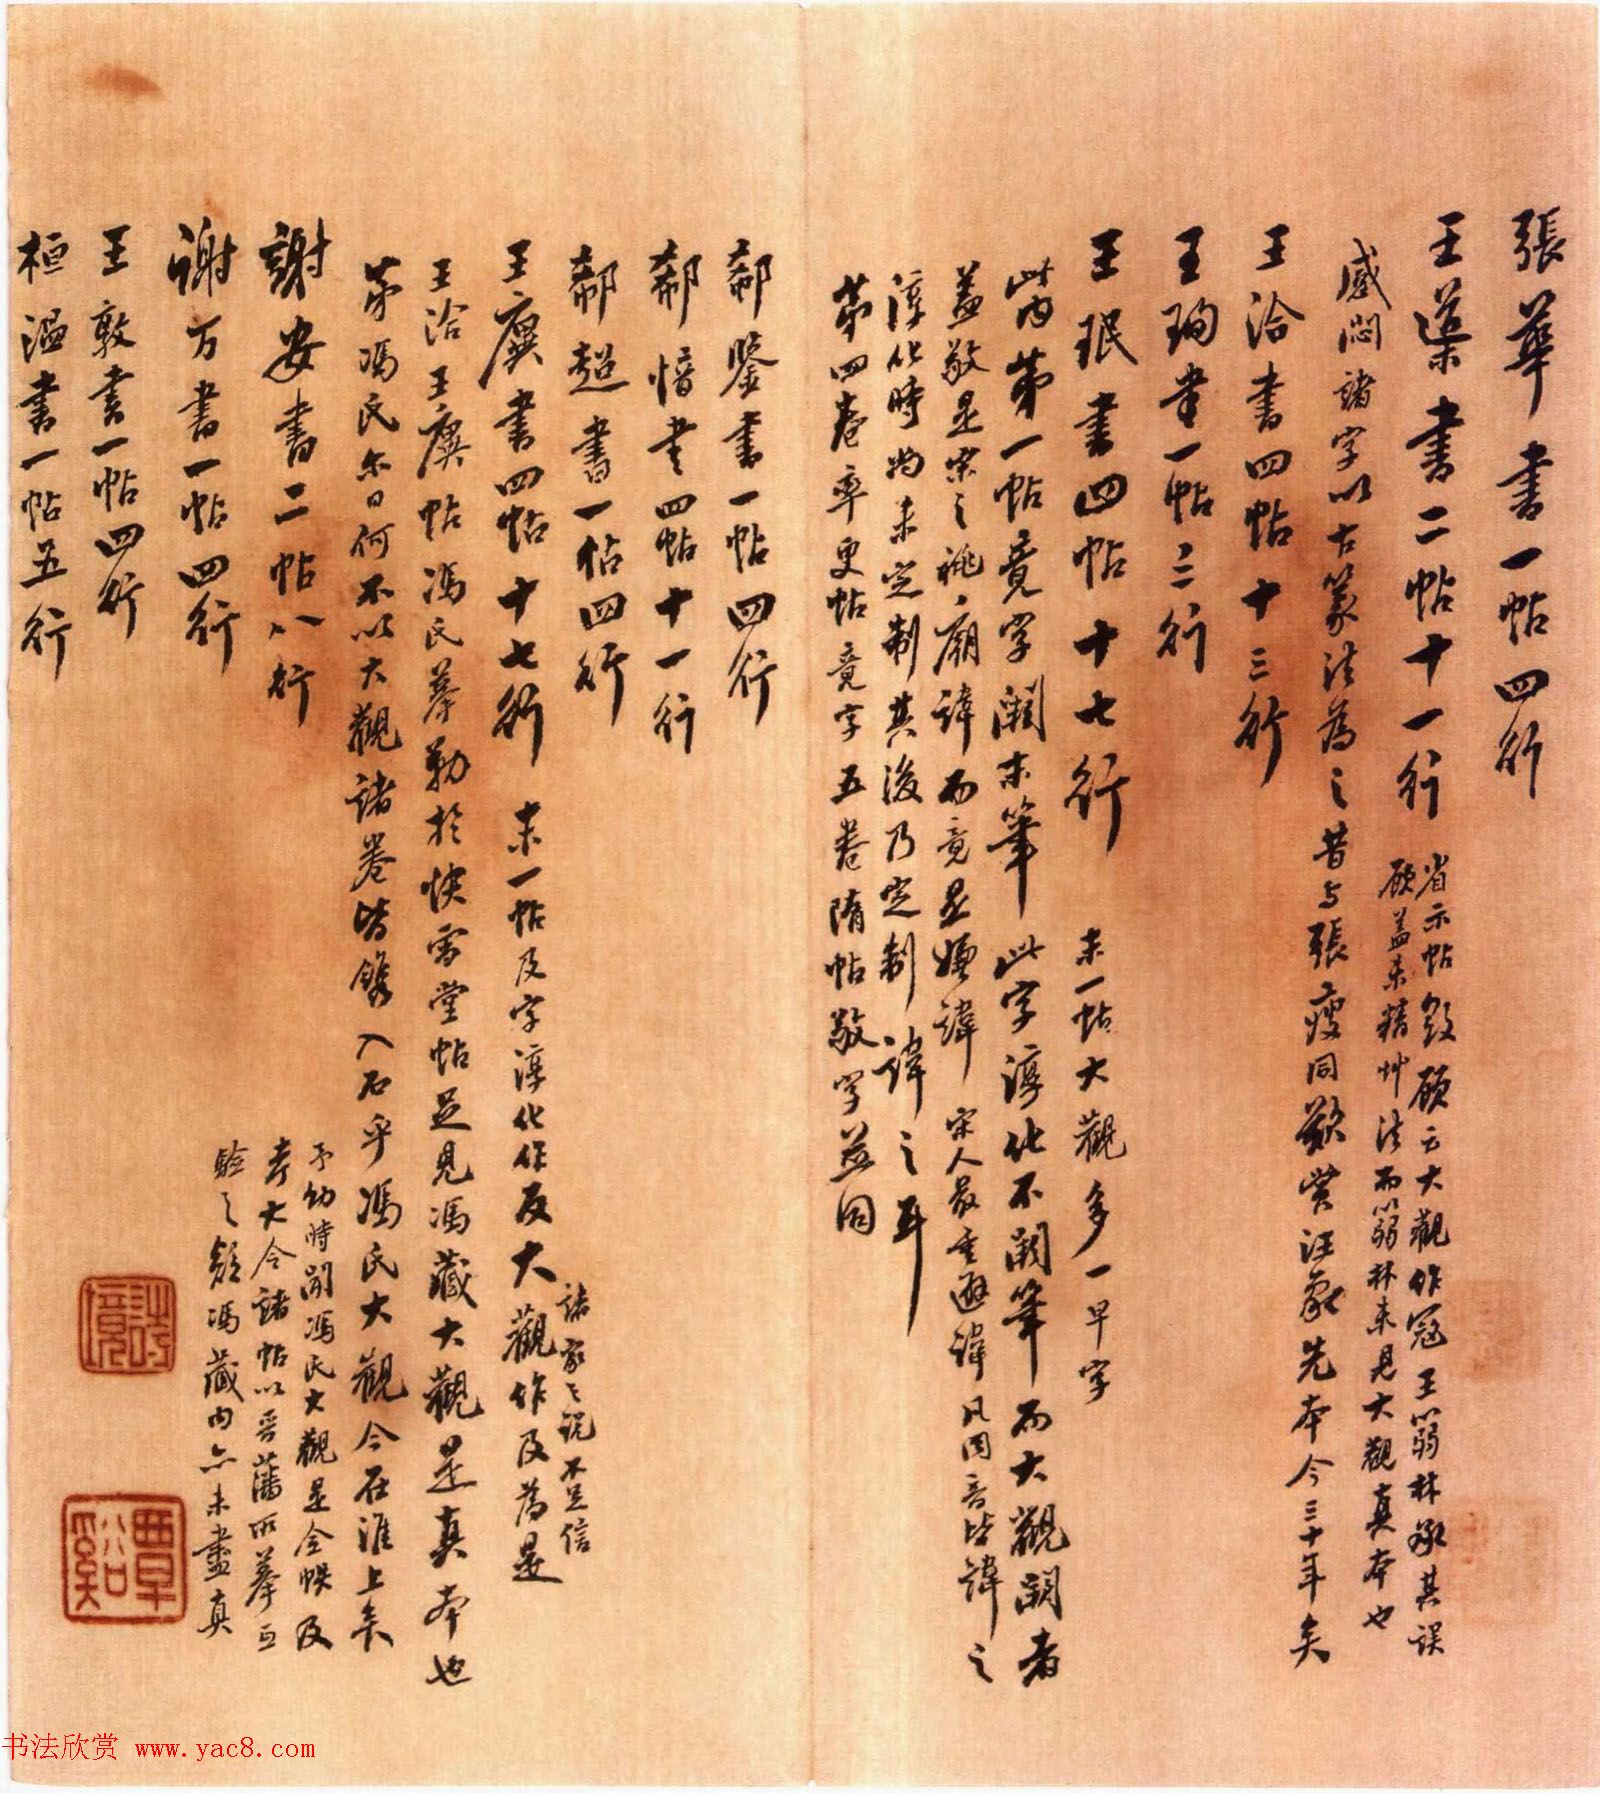 張華書一帖四行
王渠書二帖十一行 省示帖 願云大觀作冠王篛林承其誤
願蓋未精艸法而篛林未見大觀真本也
感悶諸字以古篆法為之昔与張瘦同 賞汪 先本今三十年矣
王洽書四帖十三行
王珣書一帖三行
王珉書四帖十七行 末一帖大觀多一早字
此內第一帖竟字闕末筆此字淳化不闕筆而大觀闕者
蓋敬是宋之祧廟諱而竟是嫌諱 宋人最重避諱凡同音皆諱之
淳化時尚未定制其後乃定制諱之耳
第四卷率更帖竟字五卷隋帖敬字並同
郗鑒書一帖四行
郗愔書四帖十一行
郗超書一帖四行
王廙書四帖十七行 末一帖及字淳化作反大觀作及為是
諸家之說不足信
王洽王廙帖馮氏摹勒於快雪堂帖足見馮藏大觀是真本也
第馮氏尔日何不以大觀諸卷皆鐫入石乎馮氏大觀今在淮上矣
謝安書二帖八行
予幼時聞馮氏大觀是全帙及
考大令諸帖以晉藩所摹互
驗之 馮藏內亦未盡真
謝万書一帖四行
王敦書一帖四行
桓溫書一帖五行
詩境
覃谿
书法欣赏 www.yac8.com